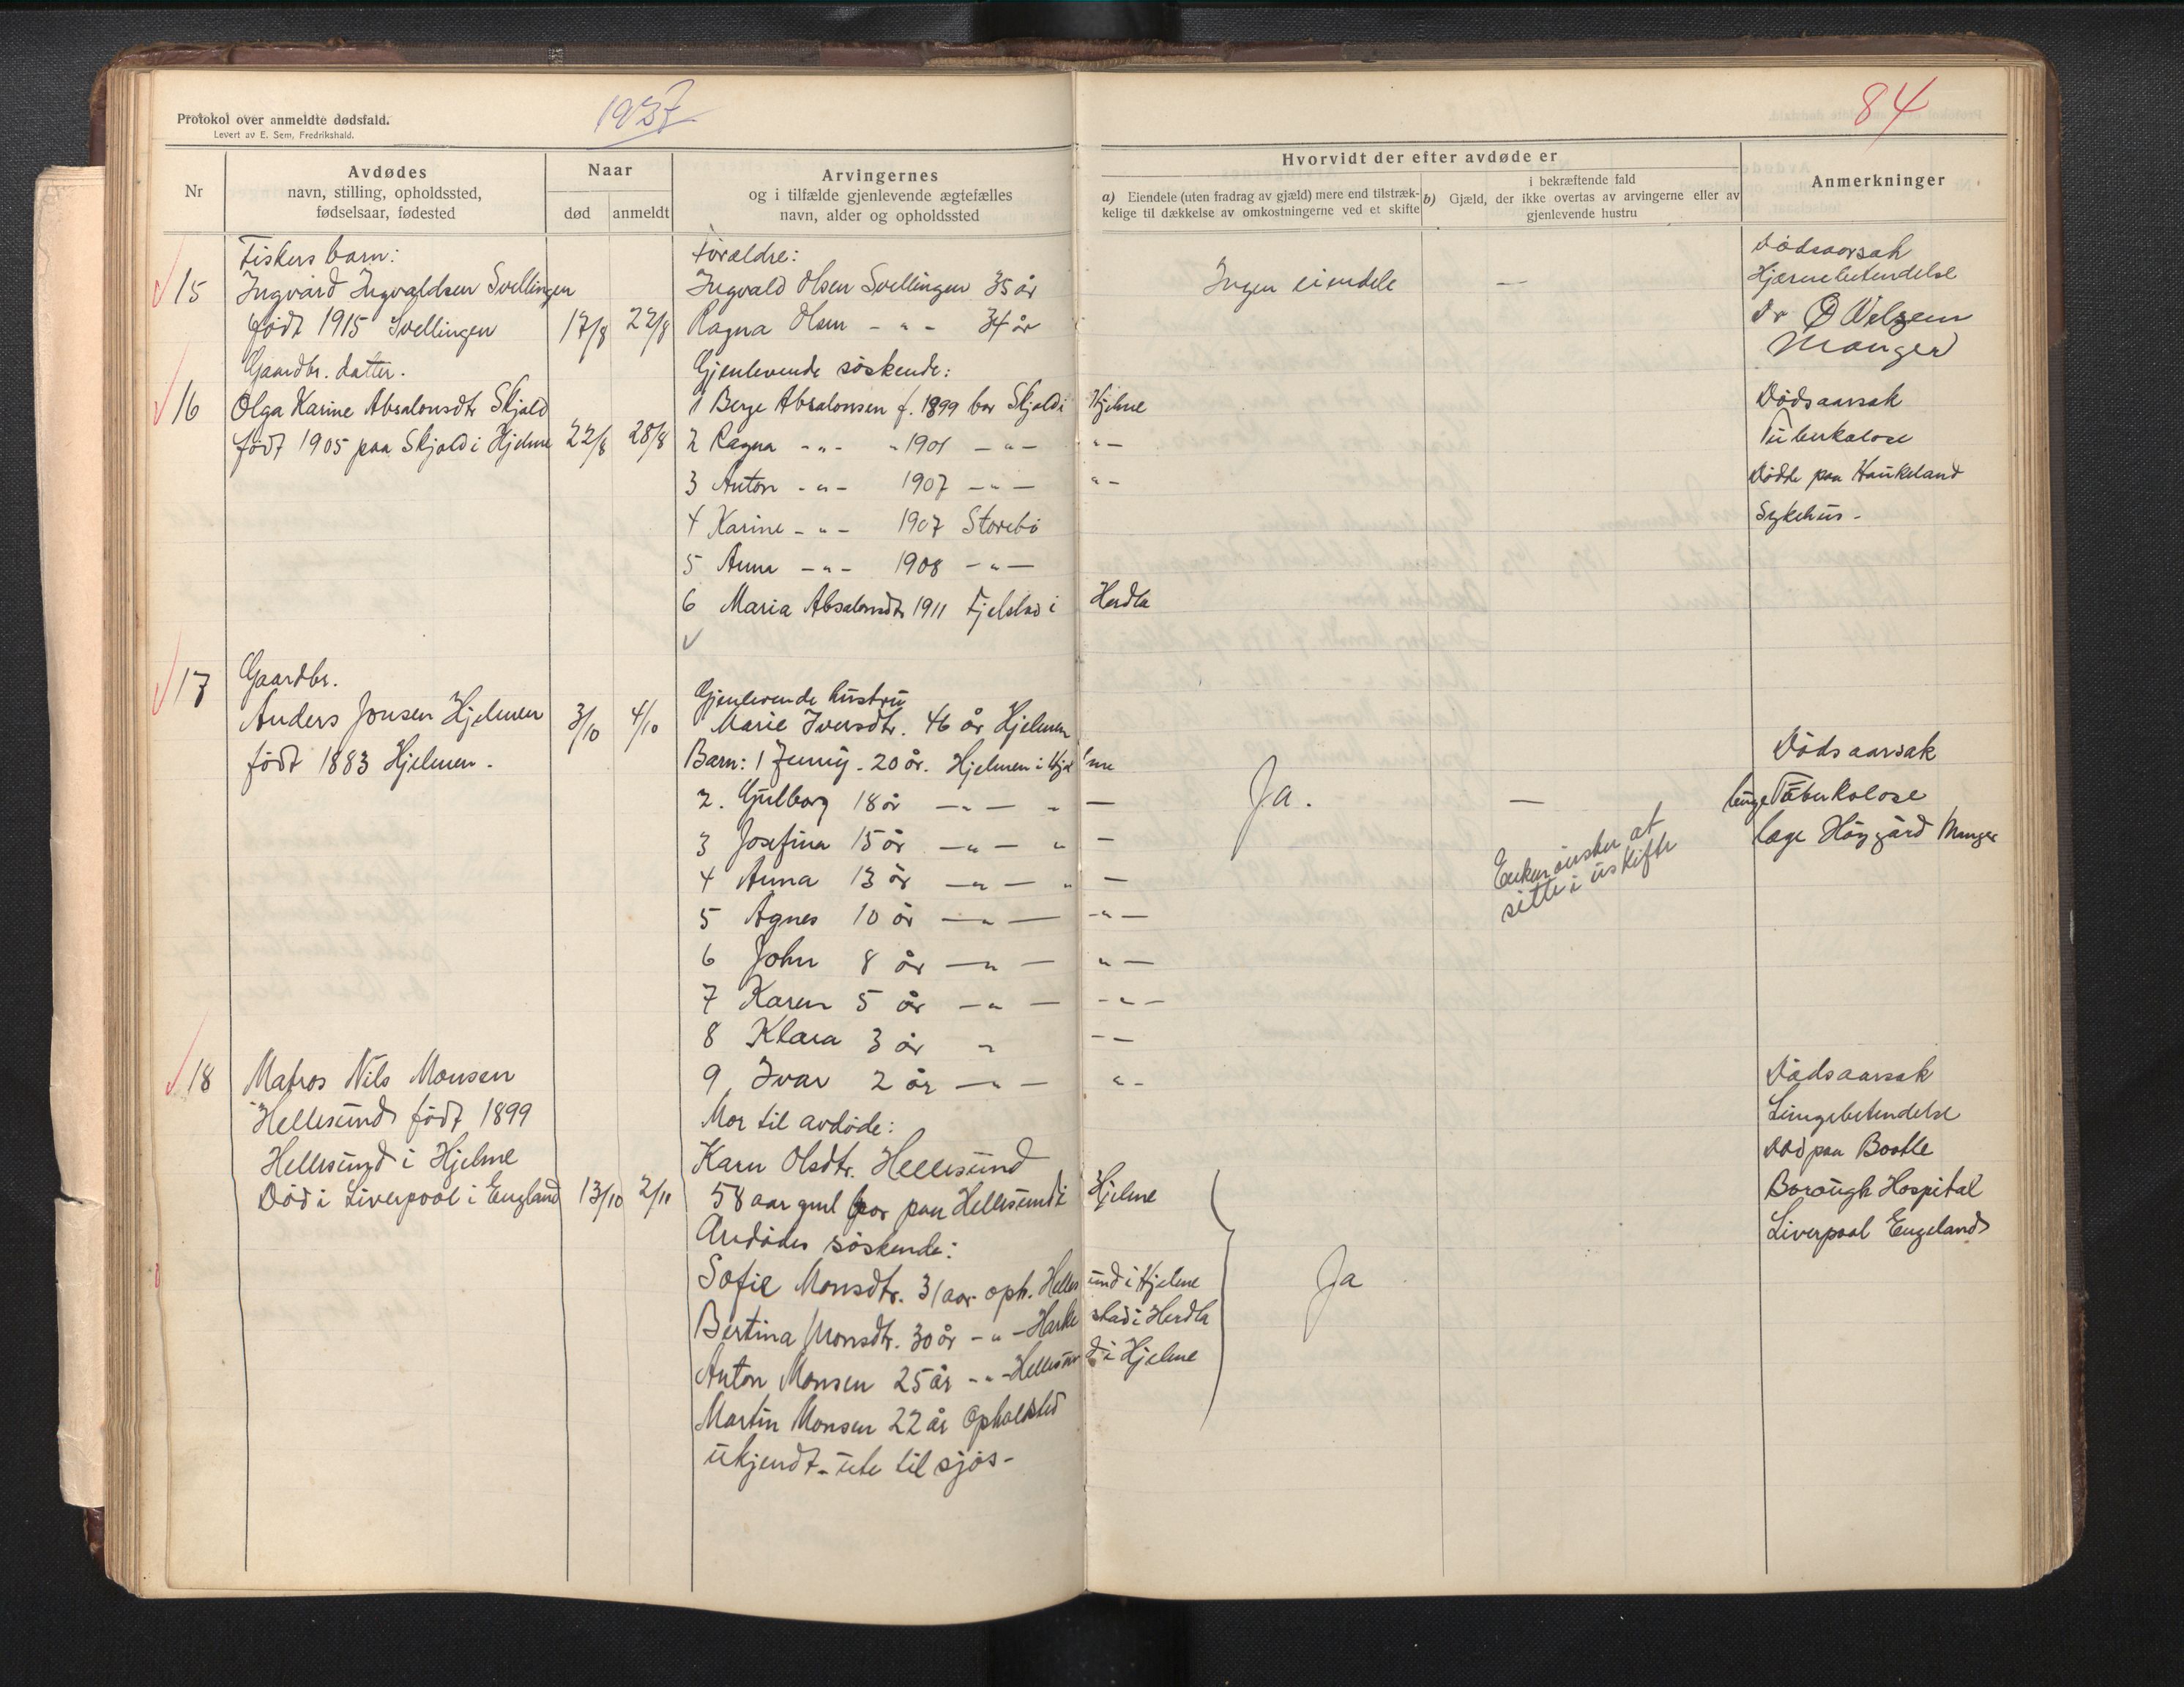 Protokol over anmeldte dødsfald.
Levert av E. Sem, Fredrikshald.
1927
84
Nr
Avdødes
navn, stilling, opholdssted,
fødselsaar, fødested
Naar
død
anmeldt
Arvingernes
og i tilfælde gjenlevende ægtefælles
navn, alder og opholdssted
Hvorvidt der efter avdøde er
a) Eiendele (uten fradrag av gjæld) mere end tilstræk-
kelige til dækkelse av omkostningerne ved et skifte
b) i bekræftende fald
Gjæld, der ikke overtas av arvingerne eller av
gjenlevende hustru
Anmerkninger
15
Fiskers barn:
Ingvard Ingvaldsen Svellingen
født 1915 Svellingen 17/8 22/8
Forældre:
Ingvald Olsen Svellingen 35 år
Ragna Olsen - " - 34 år
Ingen eiendele —
Dødsaarsak
Hjernebetendelse
Dr
Manger
16
Gaardbr. datter.
Olga Karine Absalonsdtr Skjold
født 1905 paa Skjold i Hjelme 22/8 28/8
Gjenlevende søskende:
1 Berge Absalonsen f. 1899 bor Skjold i Hjelme
2 Ragna - " - " 1901 - " - " -
3 Anton - " - 1907 - " - " -
4 Karine - " - 1907 Storebø
5 Anna - " - 1908 - " -
6 Maria Absalonsdtr 1911 Fjelstad i Herdla
Dødsaarsak
Tuberkolose
Dødde paa Haukeland
Sykehus -
17
Gaardbr.
Anders Jonsen Hjelmen 3/10 4/10
født 1883 Hjelmen -
Gjenlevende hustru
Marie Iversdtr. 46 år Hjelmen
Barn: 1 Jenny - 20 år. Hjelmen i Hjelme
2. Gulborg 18 år - " - " -
3 Josefina 15 år - " - " -
4 Anna 13 år - " - " -
5 Agnes 10 år - " - - " -
6 John 8 år - " - " -
7 Karen 5 år - " - - " -
8 Klara 3 år " - -
9, Ivar 2 år - " - " -
Ja. —
Enken ønsker at
sitte i uskifte
Dødsaarsak
lunge Tuberkolose
læge Höygård Manger
18
Matros Nils Monsen
Hellesund født 1899
Hellesund i Hjelme
Død i Liverpool i England 13/10 2/11
Mor til avdøde:
Karn Olsdtr. Hellesund
58 aar gml bor paa Hellesund i Hjelme
Avdødes søskende:
Sofie Monsdtr. 31 aar oph. Hellesund i Hjelme
Bertina Monsdtr. 30 år - " - Harkestad i Herdla
Anton Monsen 25 år - " - Hellesund i Hjelme
Martin Monsen 22 år Opholdsted
ukjendt - ute til sjøs -
Ja
Dødsaarsak
Lungebetendelse
Død paa Bootle
Borough Hospital
Liverpool Engeland